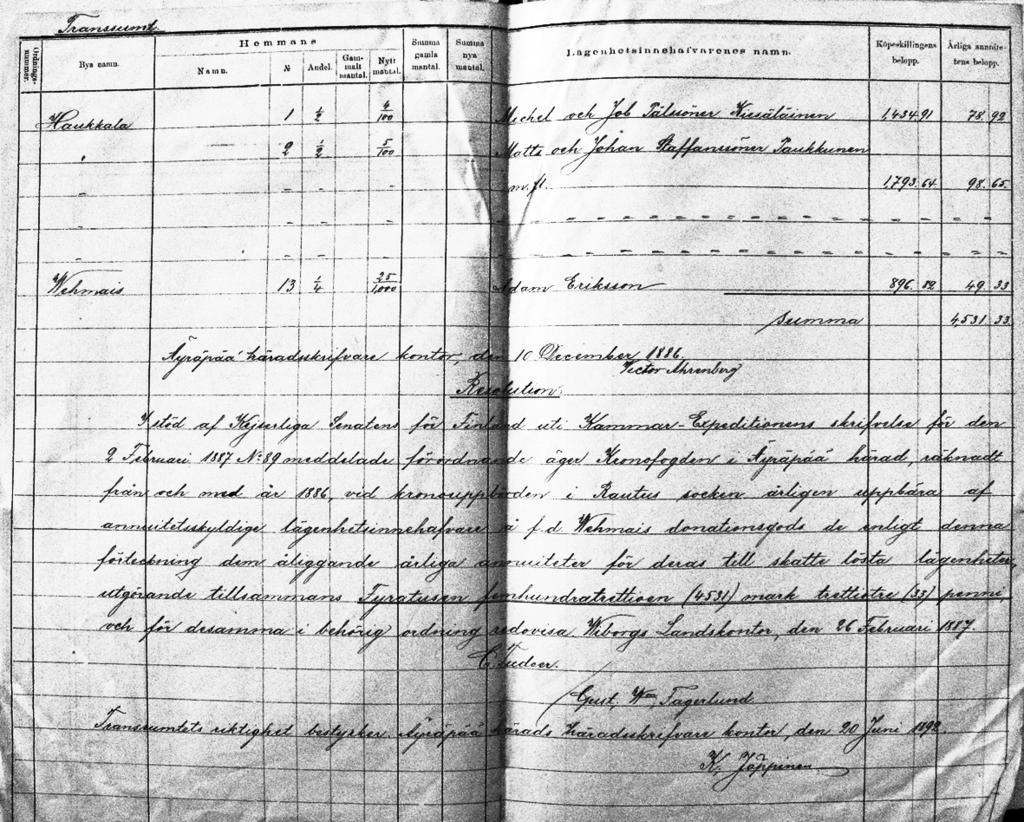 Transsumt.
Ordnings-nummer. Bya namn. Hemmans Namn. № Andel. Gammalt mantal. Nytt mantal. Summa gamla mantal. Summa nya mantal. Lägenhetsinnehafvarenes namn. Köpeskillingens belopp. Årliga annuitetens belopp.
Haukkala 1 1/2 4/100 Michel och Job Pålssöner Kiesäläinen 1,434 91 78 92
" 2 1/2 5/100 Matts och Johan Staffanssöner Paukkunen
" " " " m. fl. 1,793 64 98 65
Wehmais 13 1/4 25/1,000 Adam Eriksson 896 82 49 33
Summa 4,531 33
Äyräpää häradsskrifvare kontor, den 10 December 1886.
Victor Ahrenberg
Resolution:
I stöd af Kejserliga Senatens för Finland uti Kammar-Expeditionens skrifvelse för den
2 Februari 1887 № 89 meddelade förordnande äger Kronofogden i Äyräpää härad, räknadt
från och med år 1886, vid kronouppbörden i Rautus socken årligen uppbära af
annuitetsskyldige lägenhetsinnehafvare å f.d. Wehmais donationsgods de enligt denna
förteckning dem åliggande årliga annuiteter för deras till skatte lösta lägenheter,
utgörande tillsammans Fyratusen femhundratrettioen (4531) mark trettiotre (33) penni,
och för desamma i behörig ordning redovisa. Wiborgs Landskontor, den 26 Februari 1887.
C. Tudeer.
Gust. Wm. Fagerlund
Transsumtets riktighet bestyrker. Äyräpää härads häradsskrifvare kontor, den 20 Juni 1892.
K. Jäppinen